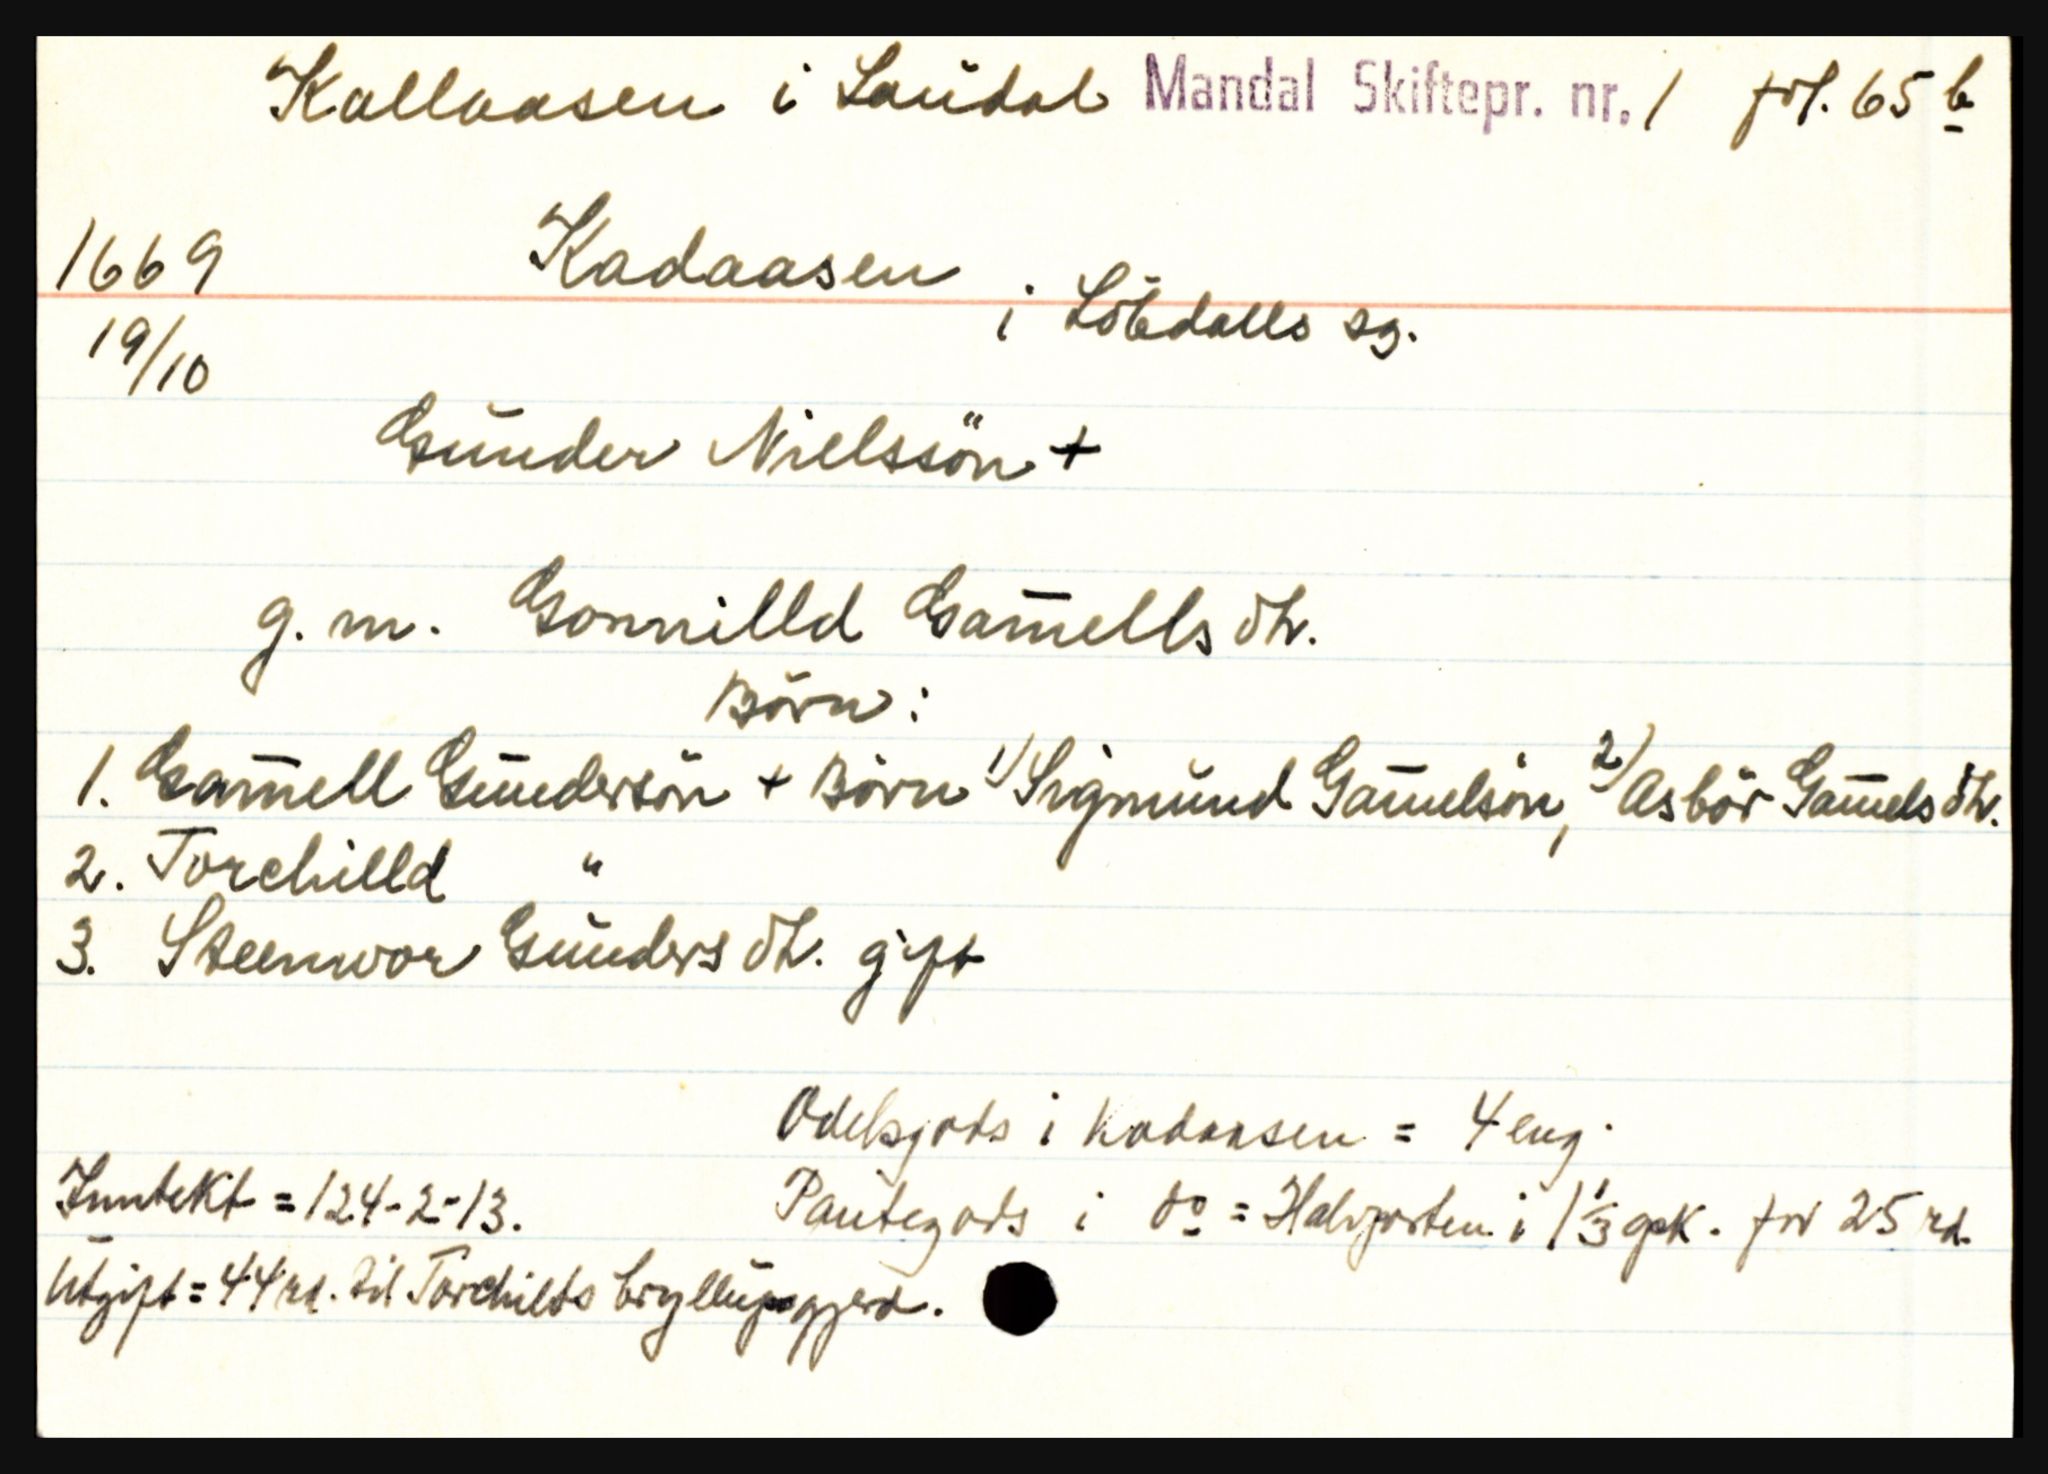 Kallaasen i Laudal Mandal Skiftepr. nr. 1 fol. 65 b
1669 Kadaasen
19/10 i Löbdalls sg.
Gunder Nielssön +
g. m. Gonnilld Gam̄ells dtr.
Börn:
1. Gam̄ell Gundersön + Börn 1) Sigmund Gam̄elsön, 2) Asbör Gam̄els dtr.
2. Torchilld "
3. Steenwor Gunders dtr. gift
Odelsgods i Kadaasen = 4 eng.
Inntekt = 124-2-13. Pantegods i do = Halvparten i 1 1/3 gsk. for 25 rd.
Utgift = 44 rd. til Torchilds bryllupsgjerd.